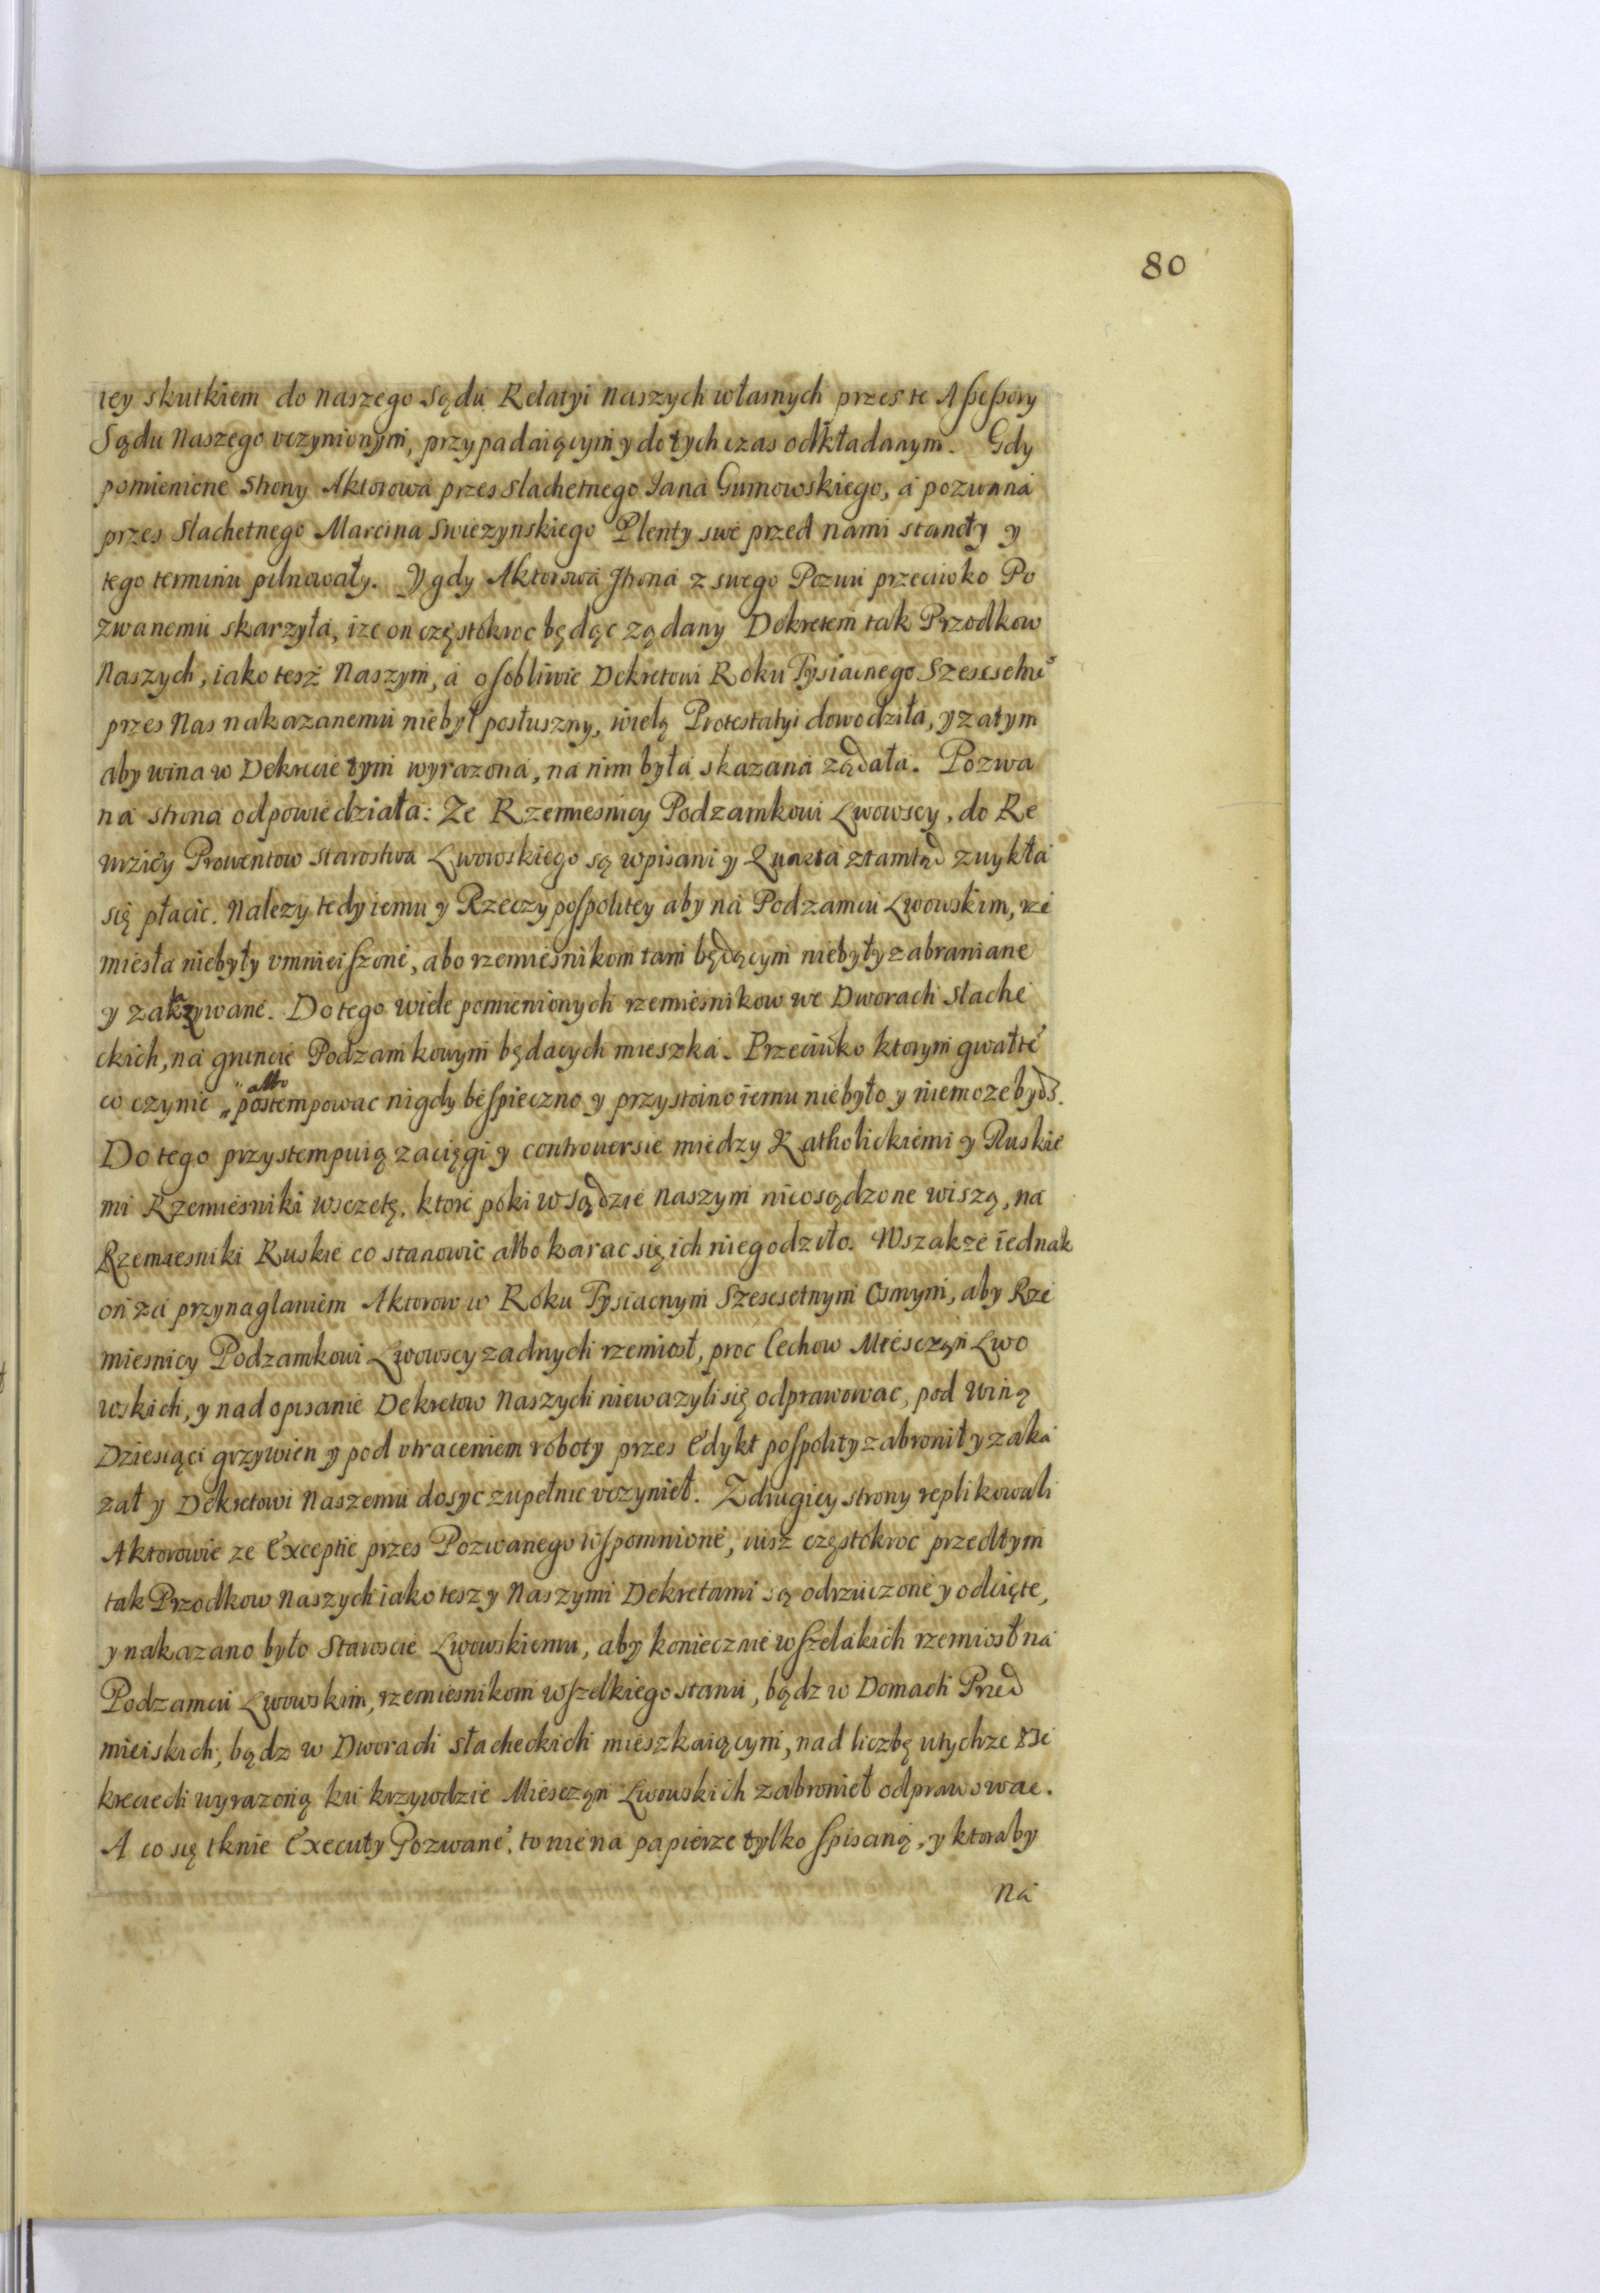 80
iey skutkiem do naszego Sądu Relatyi naszych własnych przes te Aſseſsory
Sądu naszego vczynionym, przypadaiącym y dotychczas odkładanym. Gdy
pomienione strony Aktorowa przes slachetnego Jana Gumowskiego, a pozwana
przes slachetnego Marcina Swiezynskiego Plenty swe przed nami stanęły y
tego terminu pilnowały. Y gdy Aktorowa strona z swego Pozwu przeciwko Po
zwanemu skarzyła, ize on częstokroc będąc ządany Dekretem tak Przodkow
Naszych, iako tesz Naszym, a oſobliwie Dekretowi Roku Tysiacnego Szescsetnė
przes Nas nakazanemu niebył posłuszny, wielą Protestatyi dowodziła, y zatym
aby wina w Dekrecie tym wyrazona, na nim była skazana ządała. Pozwa
na strona odpowiedziała: Ze Rzemiesnicy Podzamkowi Lwowscy, do Re
wiziey Prowentow Starostwa Lwowskiego są wpisani y Quarta ztamtąd zwykła
się płacic. Nalezy tedy iemu y Rzeczypoſpolitey aby na Podzamcu Lwowskim, rze
miesła niebyły vmnieiſzone, abo rzemiesnikom tam będącym niebyły zabraniane
y zakazywane. Do tego wiele pomienionych rzemiesnikow we Dworach slache
ckich, na gruncie Podzamkowym będacych mieszka. Przeciwko ktorym gwałtė
co czynic „ albo postempowac nigdy beſpieczno y przystoino iemu niebyło y niemoze bydz.
Do tego przystempuią zaciągi y controuersie miedzy Katholickiemi y Ruskie
mi Rzemiesniki wsczetę, ktore poki w Sądzie naszym nieosądzone wiszą, na
Rzemiesniki Ruskie co stanowic albo karac się ich niegodziło. Wszakze iednak
on za przynaglaniem Aktorow w Roku Tysiacnym Szescsetnym Osmym, aby Rze
miesnicy Podzamkowi Lwowscy zadnych rzemiosł, proc Cechow Miesczan Lwo
wskich, y nad opisanie Dekretow Naszych niewazyli się odprawowac, pod winą
Dziesiąci grzywien y pod vtraceniem roboty przes Edykt poſpolity zabronił y zaka
zał y Dekretowi Naszemu dosyc zupełnie vczynieł. Z drugiey strony replikowali
Aktorowie ze Exceptie przes Pozwanego wſpomnione, iusz częstokroc przedtym
tak Przodkow Naszych iako tesz y Naszymi Dekretami są odrzuczone y odcięte,
y nakazano było Staroscie Lwowskiemu, aby koniecznie wſzelakich rzemiosł na
Podzamcu Lwowskim, rzemiesnikom wſzelkiego stanu, bądz w Domach Przed
mieiskich, bądz w Dworach słacheckich mieszkaiącym, nad liczbę w tychze De
kreciech wyrazoną ku krzywdzie Miesczan Lwowskich zabronieł odprawowac.
A co się tknie Executy Pozwanė, to nie na papierze tylko ſpisaną, y ktoraby
Na